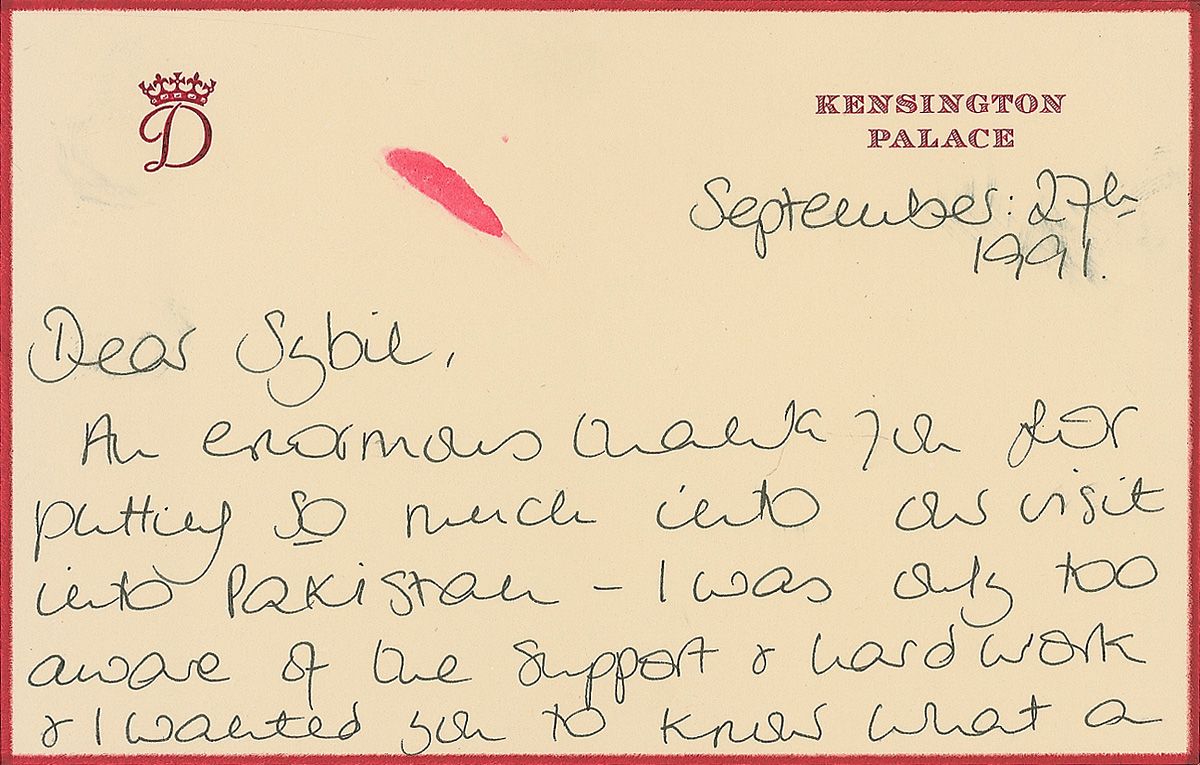 D
KENSINGTON
PALACE
September: 27th
1991.
Dear Sybil,
An enormous thank you for
putting so much into our visit
into Pakistan - I was only too
aware of the support & hard work
& I wanted you to know what a